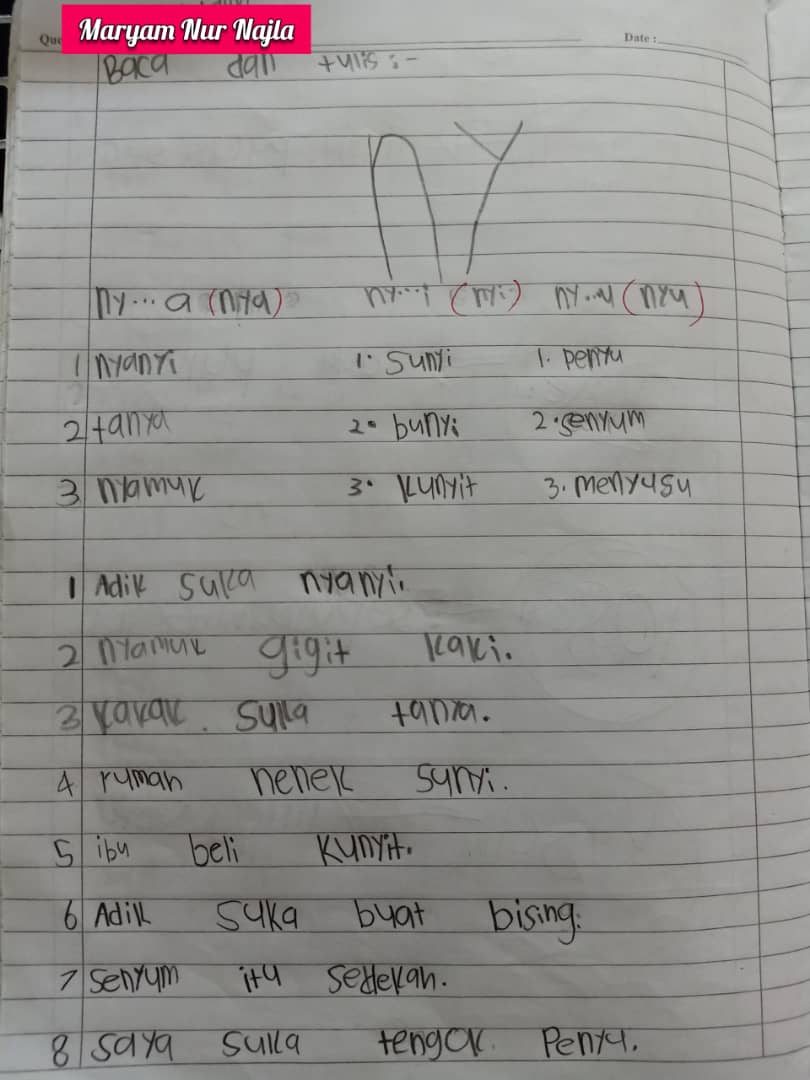 Maryam Nur Najla
Que Date :
Baca dan tulis :-
ny
ny...a (nya) ny...i (nyi) ny...u (nyu)
1 nyanyi 1. sunyi 1. penyu
2 tanya 2. bunyi 2. senyum
3 nyamuk 3. kunyit 3. menyusu
1 Adik suka nyanyi.
2 nyamuk gigit kaki.
3 kakak. suka tanya.
4 rumah nenek sunyi.
5 ibu beli kunyit.
6 Adik suka buat bising.
7 senyum itu sedekah.
8 saya suka tengok. Penyu.